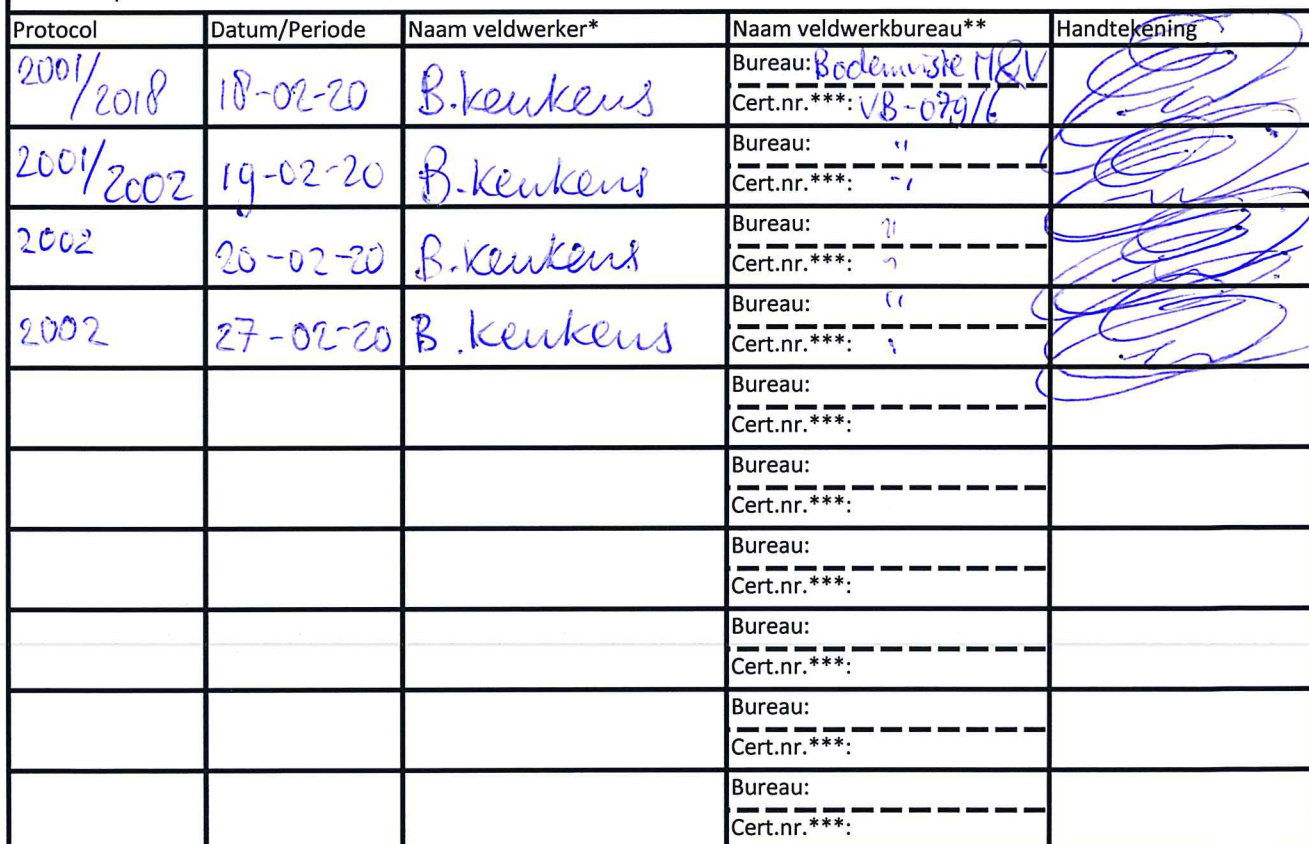 Protocol Datum/Periode Naam veldwerker* Naam veldwerkbureau** Handtekening
2001/2018 18-02-20 B. Keukens Bureau: M&V
Cert.nr.***: VB-079/6
2001/2002 19-02-20 B. Keukens Bureau: "
Cert.nr.***: "
2002 20-02-20 B. Keukens Bureau: "
Cert.nr.***: "
2002 27-02-20 B. Keukens Bureau: "
Cert.nr.***: "
Bureau:
Cert.nr.***:
Bureau:
Cert.nr.***:
Bureau:
Cert.nr.***:
Bureau:
Cert.nr.***:
Bureau:
Cert.nr.***:
Bureau:
Cert.nr.***: